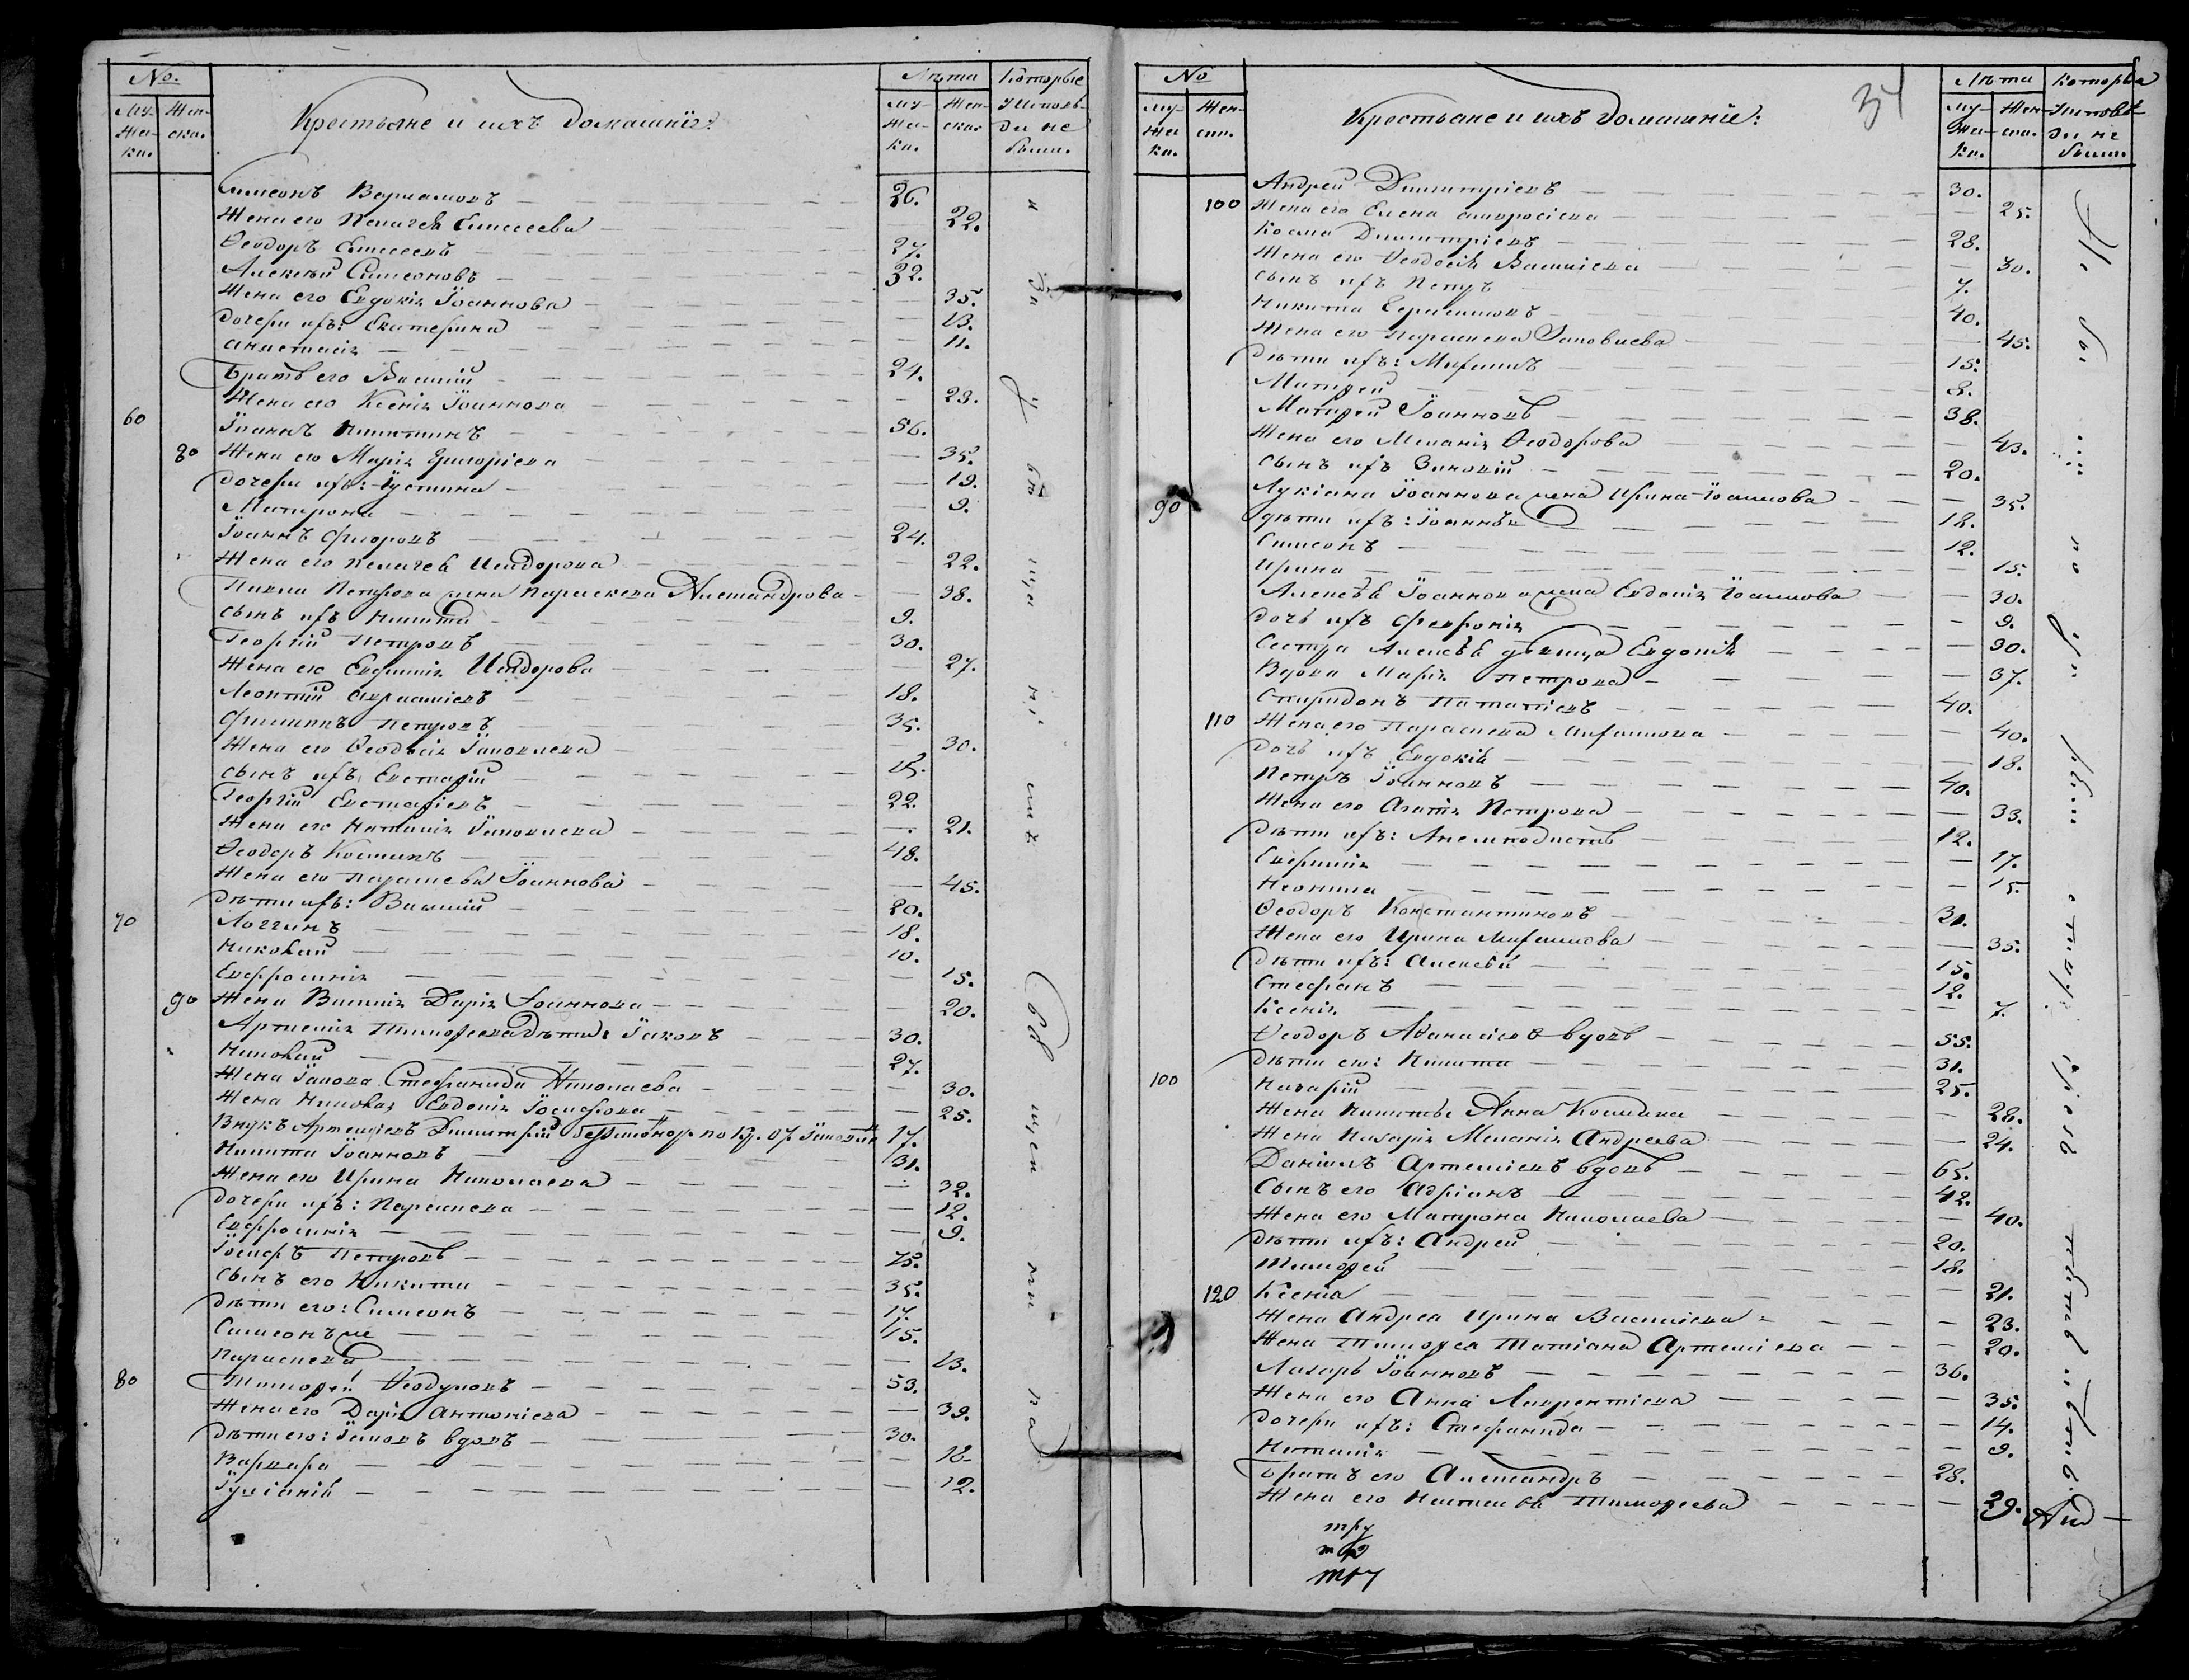 No.
Му-
жес-
ка.
Жен-
ска.
Крестьяне и ихъ домашніе:
Лѣта
Му-
жес-
ка.
Жен-
ска.
Которые
у исповѣ-
ди не
были.
Симеонъ 26.
Жена его Пелагея Елисеева 22.
Ѳеодоръ Елисеевъ 27.
Алексѣй Симеоновъ 32.
Жена его Евдокія Іоаннова 35.
дочери ихъ: Екатерина 13.
Анастасія 11.
Братъ его Василій 24.
Жена его Ксенія Іоаннова 23.
60 Іоаннъ Никитинъ 56.
80 Жена его Марія Григоріева 35.
дочери ихъ: Іустина 19.
Матрона 9.
Іоаннъ 24.
Жена его Пелагея Исидорова 22.
Петрова жена Параскева Александрова 38.
сынъ ихъ Никита 9.
Георгій Петровъ 30.
Жена его Евфимія Исидорова 27.
Леонтій 18.
Филиппъ Петровъ 35.
Жена его Ѳеодосія Іаковлева 30.
сынъ ихъ Евстафій 15.
Георгій Евстафіевъ 22.
Жена его Наталія Іаковлева 21.
Ѳеодоръ Косминъ 48.
Жена его Параскева Іоаннова 45.
дѣти ихъ: Василій 20.
70 Логгинъ 18.
Николай 10.
Евфросинія 15.
90 Жена Василія Дарія Іоаннова 20.
Артемія Тимофеева дѣти: Іаковъ 30.
Николай 27.
Жена Іакова Стефанида Николаева 30.
Жена Николая Евдокія Іосифова 25.
Внукъ Артеміевъ Димитрій 17.
Никита Іоанновъ 31.
Жена его Ирина Николаева 32.
дочери ихъ: Параскева 12.
Евфросинія 9.
Іосифъ Петровъ 75.
сынъ его Никита 35.
дѣти его: Симеонъ 17.
Симеонъ же 15.
Параскева 13.
80 Тимофей Ѳеодуловъ 53.
Жена его Дарія Антоніева 39.
дѣти его: Іаковъ вдовъ 30.
Варвара 16.
Іуліанія 12.
No
Му-
жес-
ка.
Жен-
ска.
Крестьяне и ихъ домашніе:
34
Лѣта
Му-
жес-
ка.
Жен-
ска.
Которые
у исповѣ-
ди не
были.
Андрей Димитріевъ 30.
100 Жена его Елена Амвросіева 25.
Косма Димитріевъ 28.
Жена его Ѳеодосія Василіева 30.
сынъ ихъ Петръ 7.
Никита Герасимовъ 40.
Жена его Параскева Іаковлева 45.
дѣти ихъ: Михаилъ 15.
Матфей 8.
Матфей Іоанновъ 38.
Жена его Меланія Ѳеодорова 43.
сынъ ихъ Зиновій 20.
Лукіана Іоаннова жена Ирина Іоаннова 35.
90 дѣти ихъ: Іоаннъ 18.
Симеонъ 12.
Ирина 15.
Алексѣя Іоаннова жена Евдокія Іоаннова 30.
дочь ихъ Февронія 9.
Сестра Алексѣя дѣвица Евдокія 30.
Вдова Марія Петрова 37.
Спиридонъ 40.
110 Жена его Параскева Михаилова 40.
дочь ихъ Евдокія 18.
Петръ Іоанновъ 40.
Жена его Агатія Петрова 33.
дѣти ихъ: Анемподистъ 12.
Евфимія 17.
Неонила 15.
Ѳеодоръ Константиновъ 31.
Жена его Ирина Михаилова 35.
дѣти ихъ: Алексѣй 15.
Стефанъ 12.
Ксенія 7.
Ѳеодоръ Аѳанасіевъ вдовъ 55.
дѣти его: Никита 31.
100 Назарій 25.
Жена Никиты Анна Космина 28.
Жена Назарія Меланія Андреева 24.
Даніилъ Артеміевъ вдовъ 65.
Сынъ его Адріанъ 42.
Жена его Матрона Николаева 40.
дѣти ихъ: Андрей 20.
Тимофей 18.
120 Ксенія 21.
Жена Андрея Ирина Василіева 23.
Жена Тимофея Татіана Артеміева 20.
Лазарь Іоанновъ 36.
Жена его Анна Лаврентіева 35.
дочери ихъ: Стефанида 14.
Наталія 9.
Братъ его Александръ 28.
Жена его Тимофеева 29.